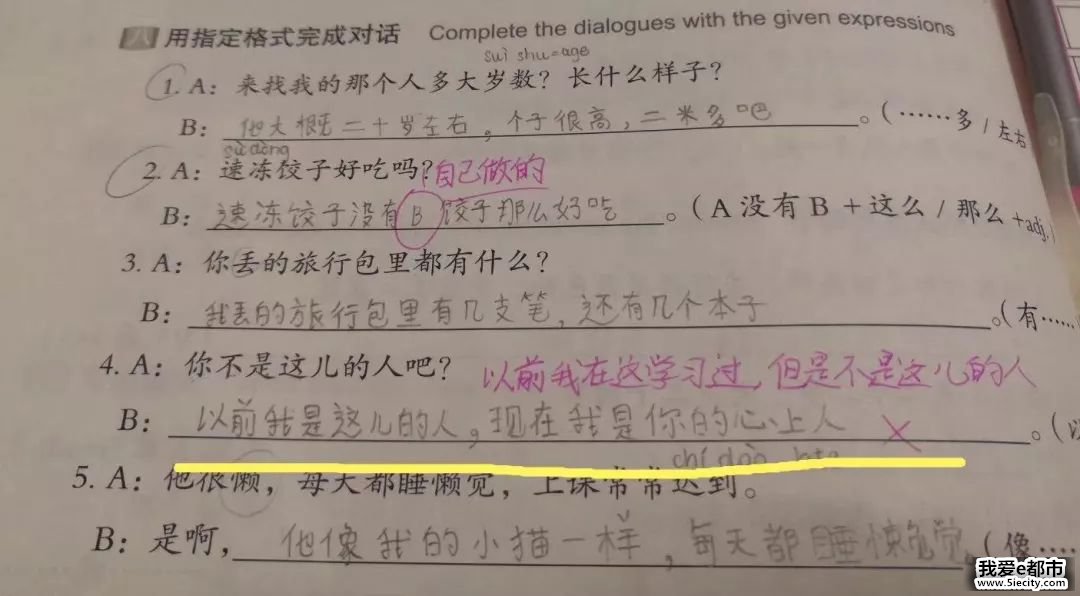 八 用指定格式完成对话 Complete the dialogues with the given expressions
suì shu=age
1. A：来找我的那个人多大岁数？长什么样子？
B：他大概二十岁左右，个子很高，二米多吧。（……多/左右
sù dòng
2. A：速冻饺子好吃吗？自己做的
B：速冻饺子没有B饺子那么好吃。（A 没有 B + 这么/那么+adj.)
3. A：你丢的旅行包里都有什么？
B：我丢的旅行包里有几支笔，还有几个本子。（有……
4. A：你不是这儿的人吧？以前我在这学习过，但是不是这儿的人
B：以前我是这儿的人，现在我是你的心上人 ×。（以
chí dào
5. A：他很懒，每天都睡懒觉，上课常常迟到。
B：是啊，他像我的小猫一样，每天都睡懒觉（像……
我爱e都市
www.5iecity.com